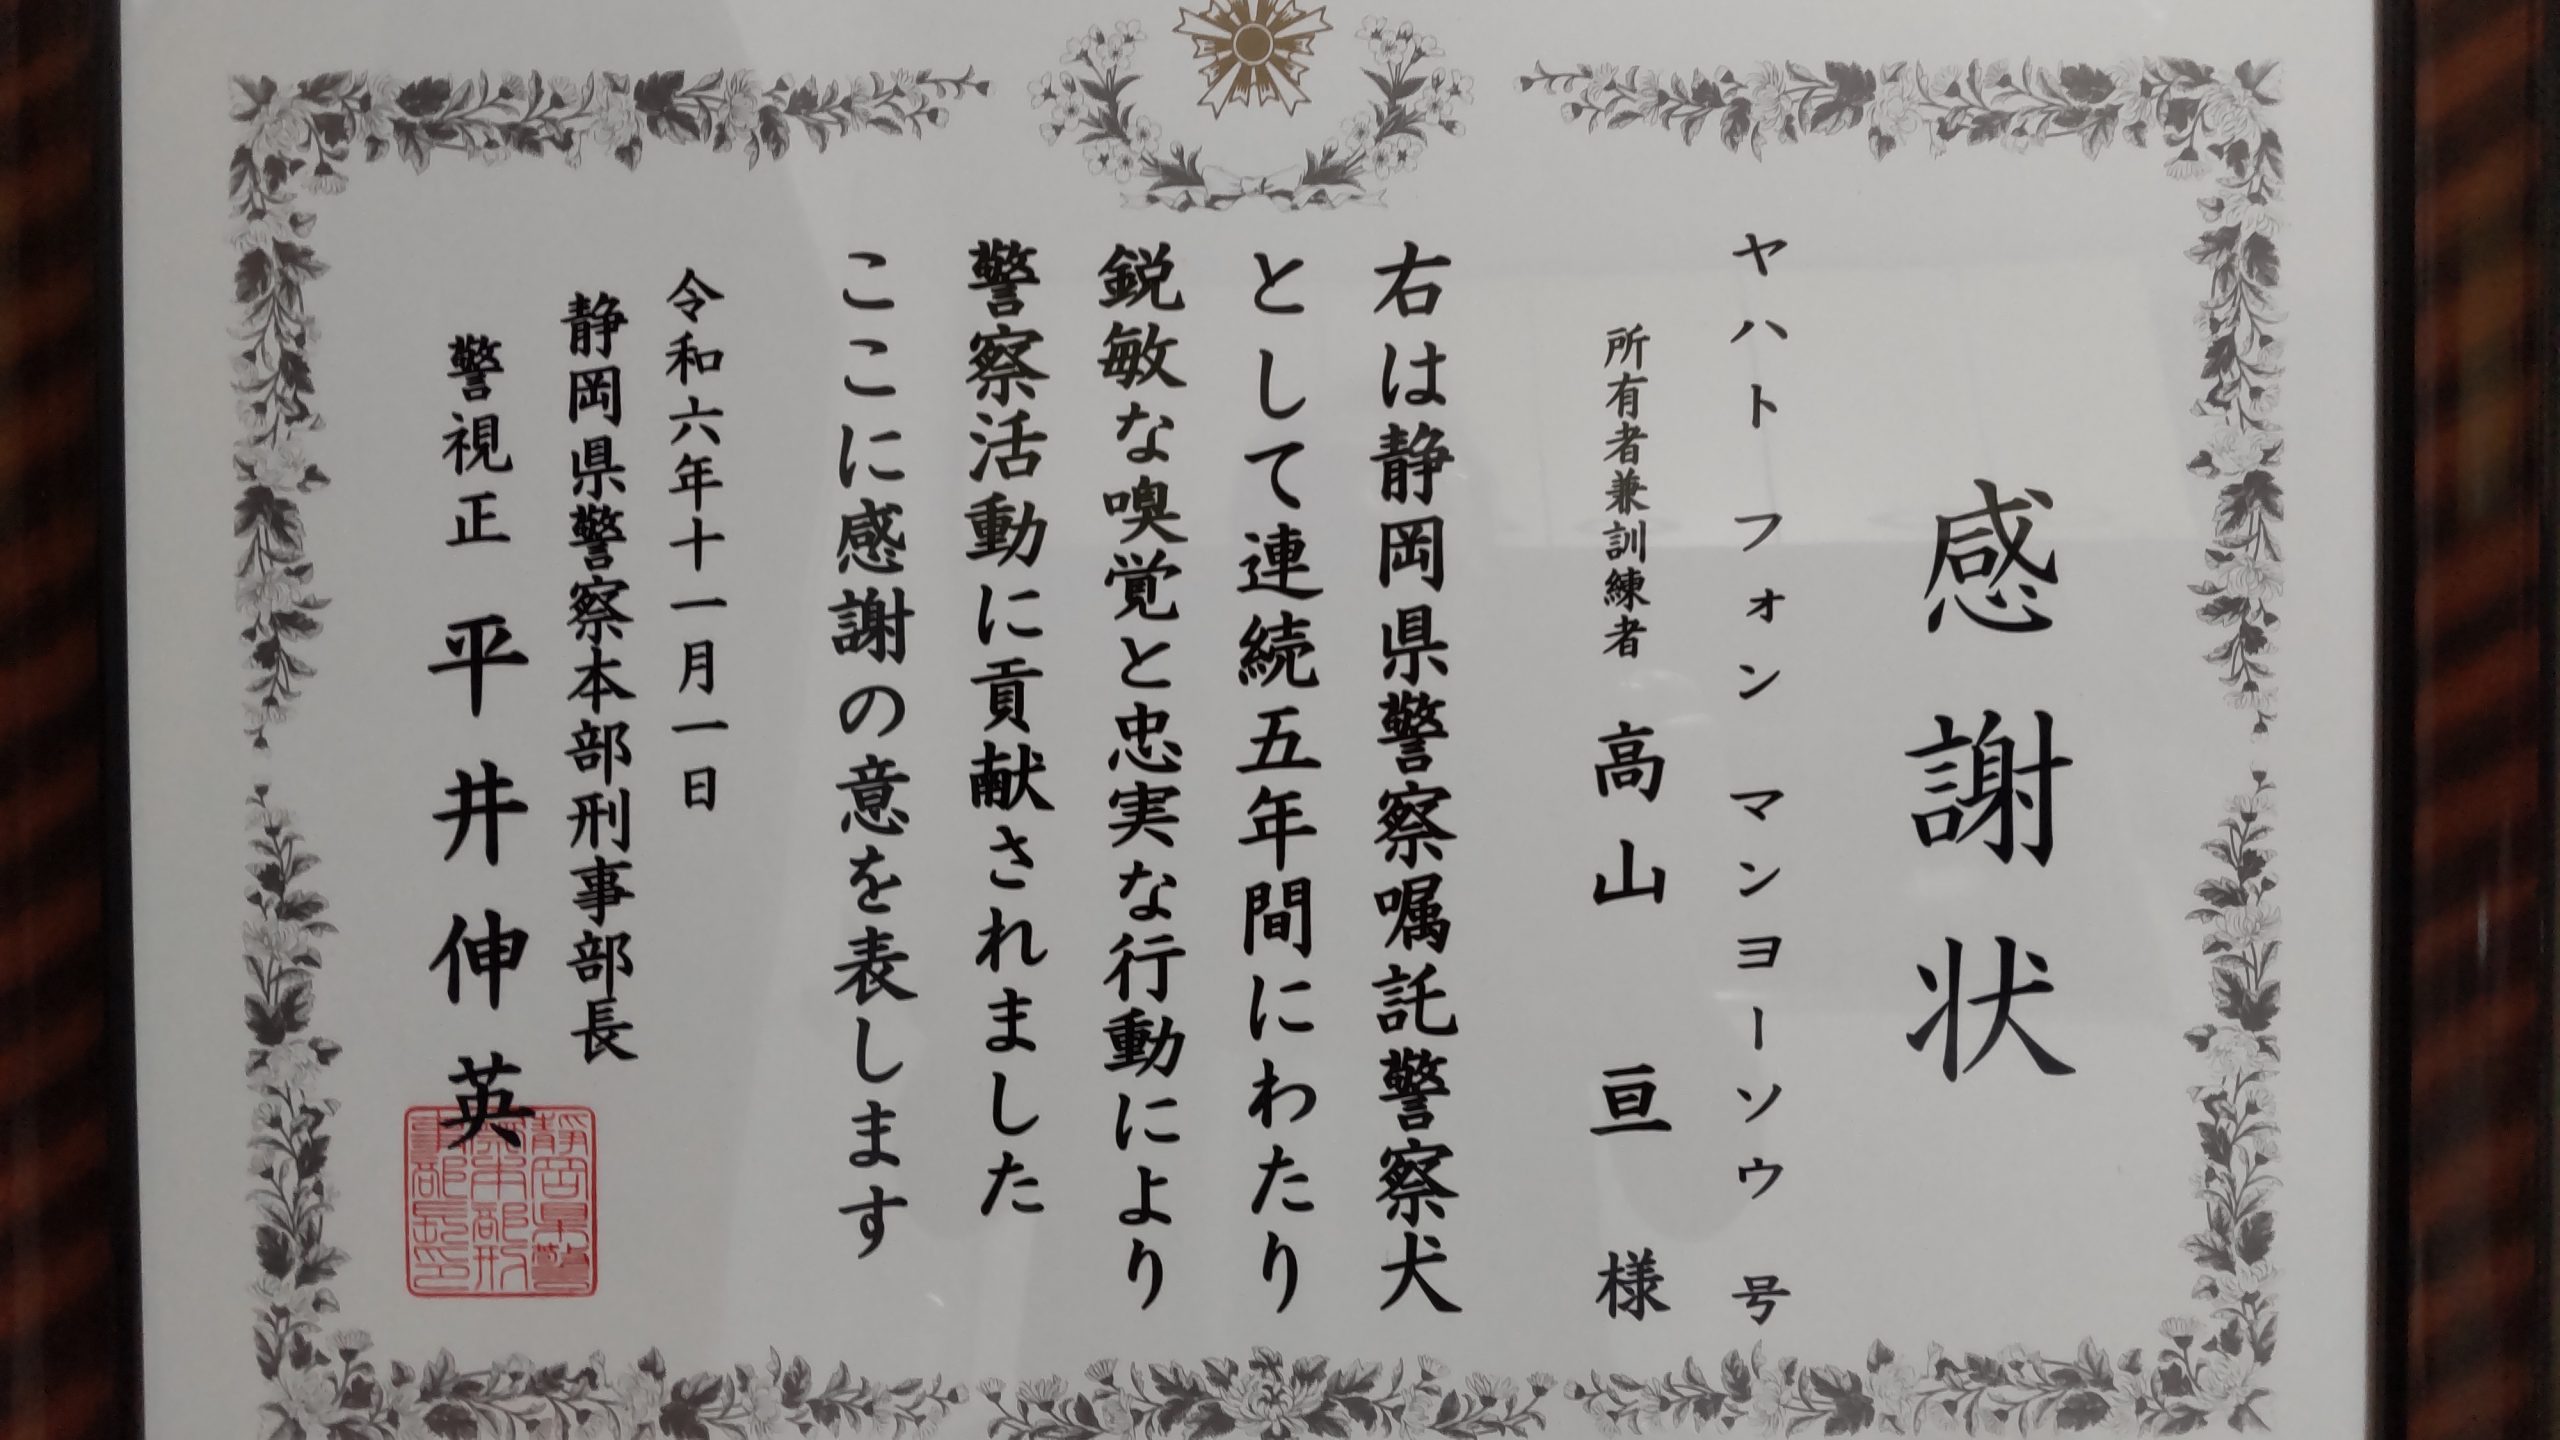 感謝状
ヤハト フォン マンヨーソウ 号
所有者兼訓練者 高山 亘 様
右は静岡県警察嘱託警察犬
として連続五年間にわたり
鋭敏な嗅覚と忠実な行動により
警察活動に貢献されました
ここに感謝の意を表します
令和六年十一月一日
静岡県警察本部刑事部長
警視正 平井伸英
静岡県警
察本部刑
事部長印